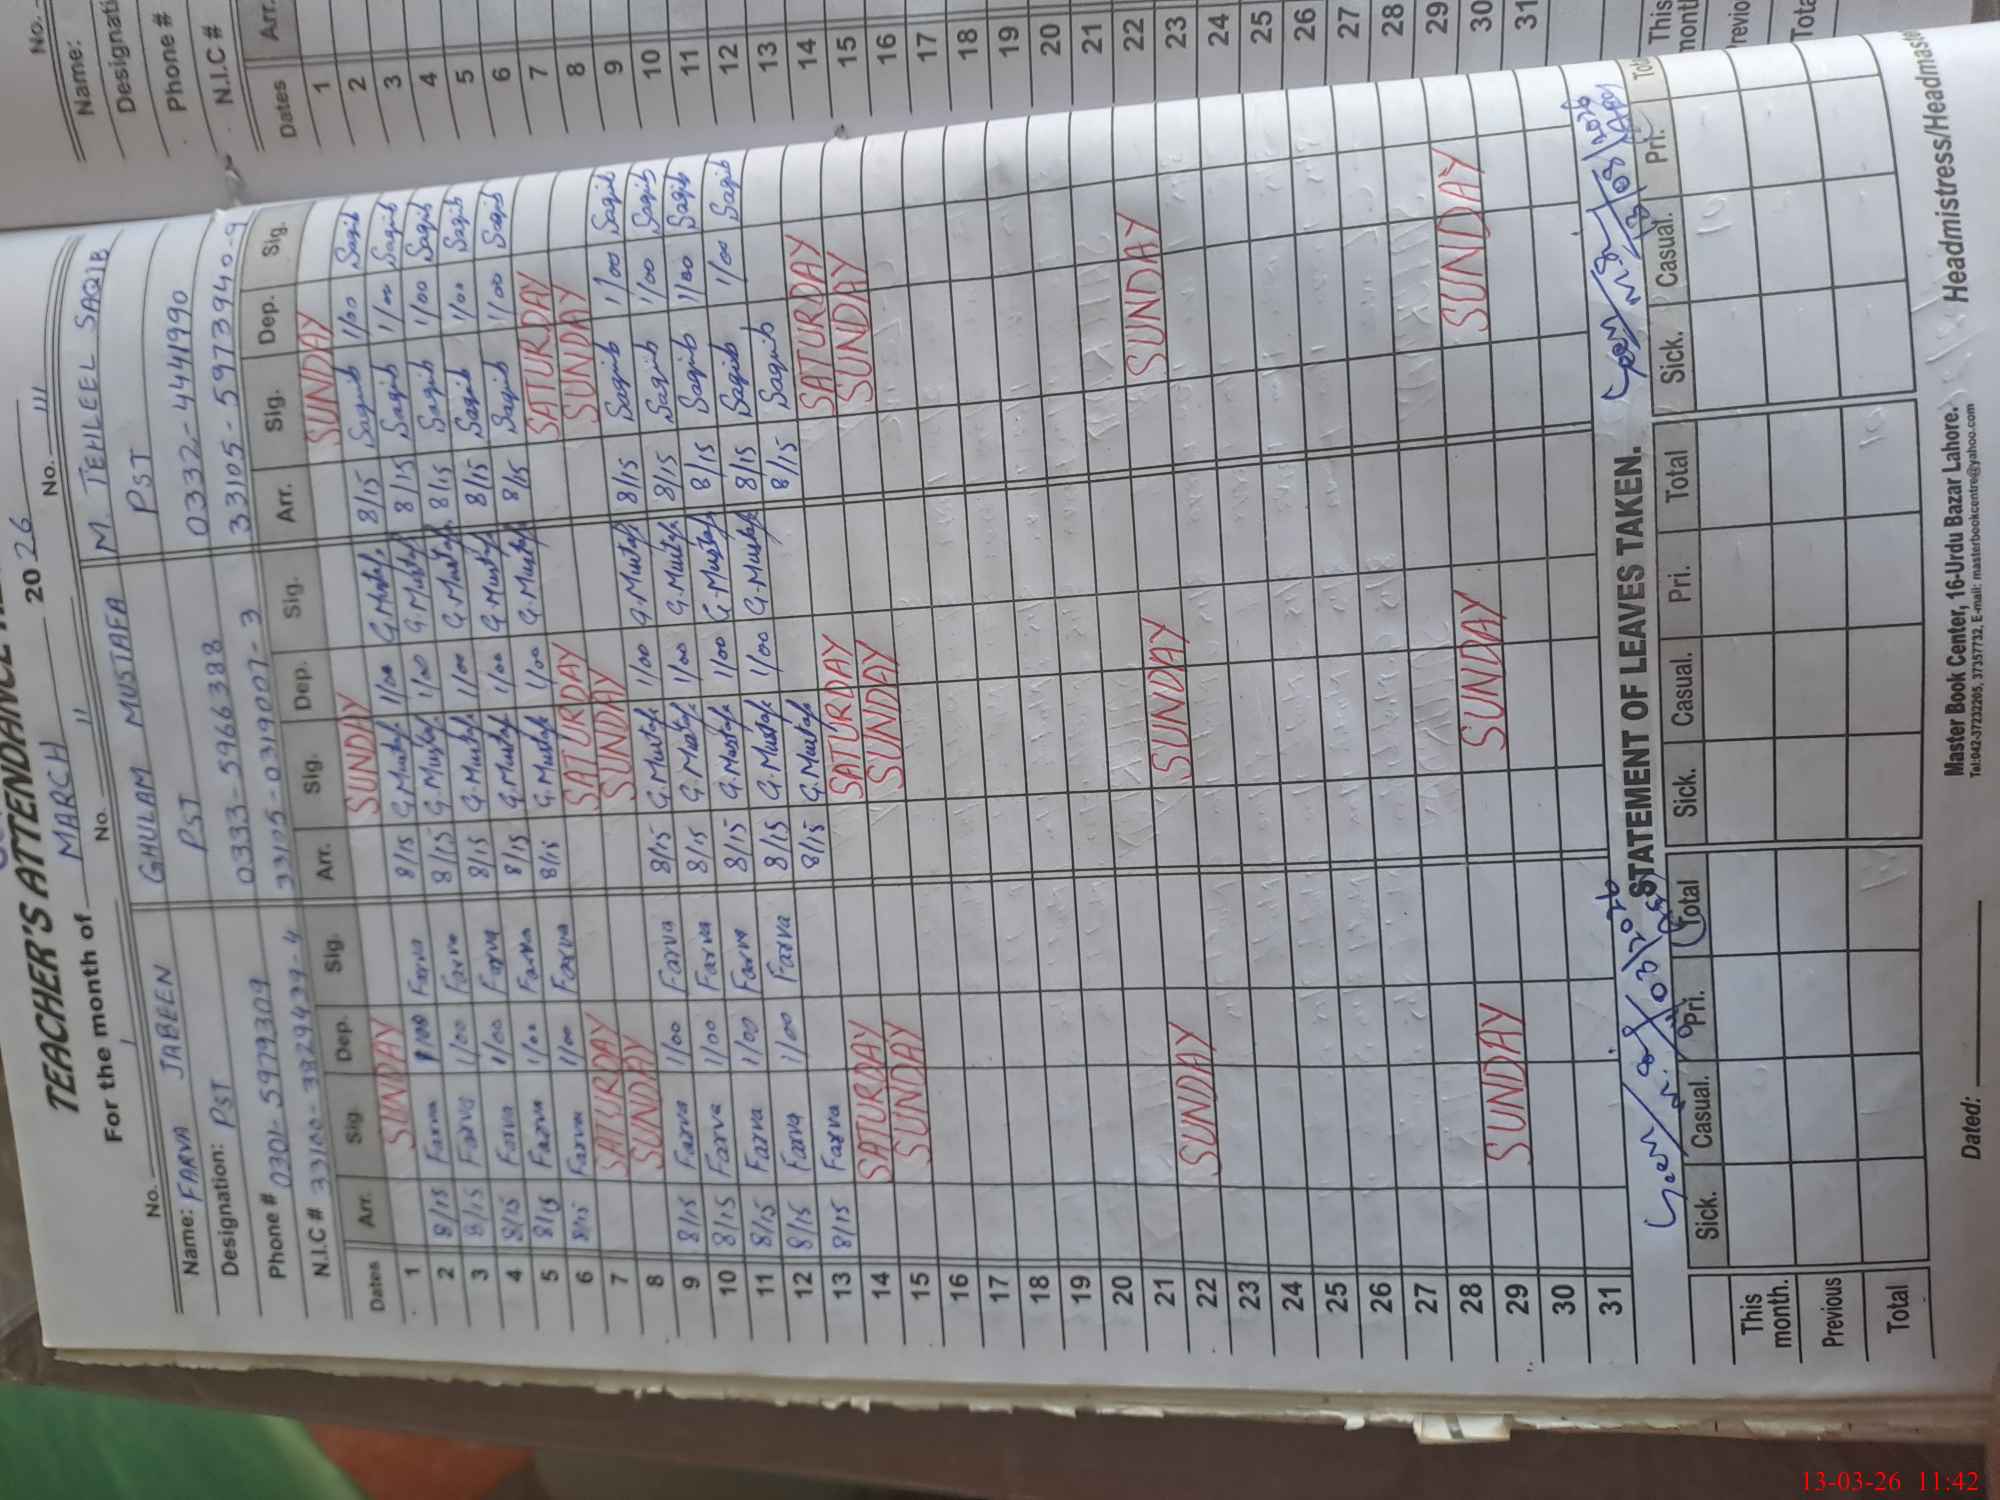 TEACHER'S ATTENDANCE
For the month of MARCH 2026
No. 1 No. 11 No. 111
Name: FARVA JABEEN GHULAM MUSTAFA M. TEHLEEL SAQIB
Designation: PST PST PST
Phone # 0301-5979309 0333-5966388 0332-4441990
N.I.C # 33100-3829439-4 33105-0319007-3 33105-5973940-9
Dates Arr. Sig. Dep. Sig. Arr. Sig. Dep. Sig. Arr. Sig. Dep. Sig.
1 SUNDAY SUNDAY SUNDAY
2 8/15 Farva 1/00 Farva 8/15 G.Mustafa 1/00 G.Mustafa 8/15 Saqib 1/00 Saqib
3 8/15 Farva 1/00 Farva 8/15 G.Mustafa 1/00 G.Mustafa 8/15 Saqib 1/00 Saqib
4 8/15 Farva 1/00 Farva 8/15 G.Mustafa 1/00 G.Mustafa 8/15 Saqib 1/00 Saqib
5 8/15 Farva 1/00 Farva 8/15 G.Mustafa 1/00 G.Mustafa 8/15 Saqib 1/00 Saqib
6 8/15 Farva 1/00 Farva 8/15 G.Mustafa 1/00 G.Mustafa 8/15 Saqib 1/00 Saqib
7 SATURDAY SATURDAY SATURDAY
8 SUNDAY SUNDAY SUNDAY
9 8/15 Farva 1/00 Farva 8/15 G.Mustafa 1/00 G.Mustafa 8/15 Saqib 1/00 Saqib
10 8/15 Farva 1/00 Farva 8/15 G.Mustafa 1/00 G.Mustafa 8/15 Saqib 1/00 Saqib
11 8/15 Farva 1/00 Farva 8/15 G.Mustafa 1/00 G.Mustafa 8/15 Saqib 1/00 Saqib
12 8/15 Farva 1/00 Farva 8/15 G.Mustafa 1/00 G.Mustafa 8/15 Saqib 1/00 Saqib
13 8/15 Farva 8/15 G.Mustafa 8/15 Saqib
14 SATURDAY SATURDAY SATURDAY
15 SUNDAY SUNDAY SUNDAY
16
17
18
19
20
21
22 SUNDAY SUNDAY SUNDAY
23
24
25
26
27
28
29 SUNDAY SUNDAY SUNDAY
30
31
STATEMENT OF LEAVES TAKEN.
Sick. Casual. Pri. Total Sick. Casual. Pri. Total Sick. Casual. Pri.
This month.
Previous
Total
Dated:
Master Book Center, 16-Urdu Bazar Lahore.
Tel:042-37232205, 37357732, E-mail: masterbookcentre@yahoo.com
No.
Name:
Phone #
N.I.C #
Dates Arr.
1
2
3
4
5
6
7
8
9
10
11
12
13
14
15
16
17
18
19
20
21
22
23
24
25
26
27
28
29
30
31
This
13-03-26 11:42